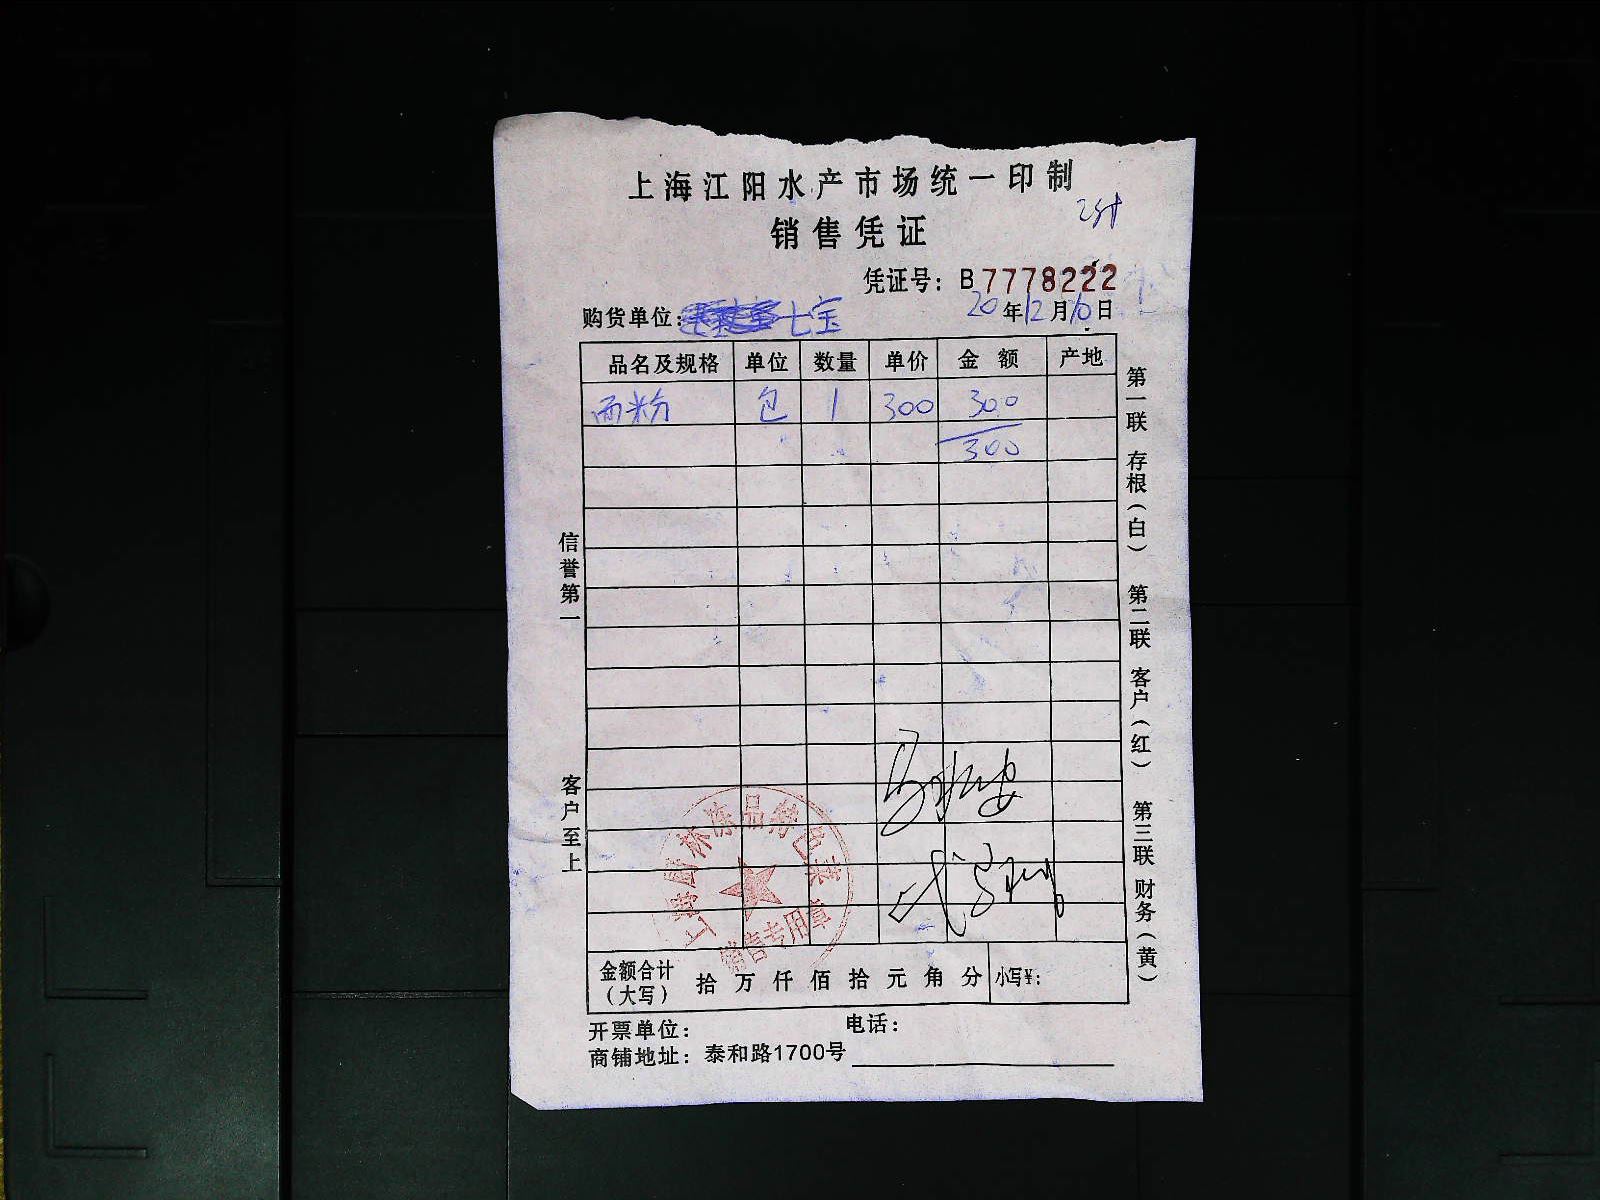 上海江阳水产市场统一印制
销售凭证
凭证号：B7778222
购货单位：七宝
20年12月10日
品名及规格 单位 数量 单价 金额 产地
面粉 包 1 300 300
300
信誉第一 客户至上
第一联 存根（白） 第二联 客户（红） 第三联 财务（黄）
销售专用章
金额合计（大写） 拾万仟佰拾元角分 小写¥：
开票单位： 电话：
商铺地址：泰和路1700号